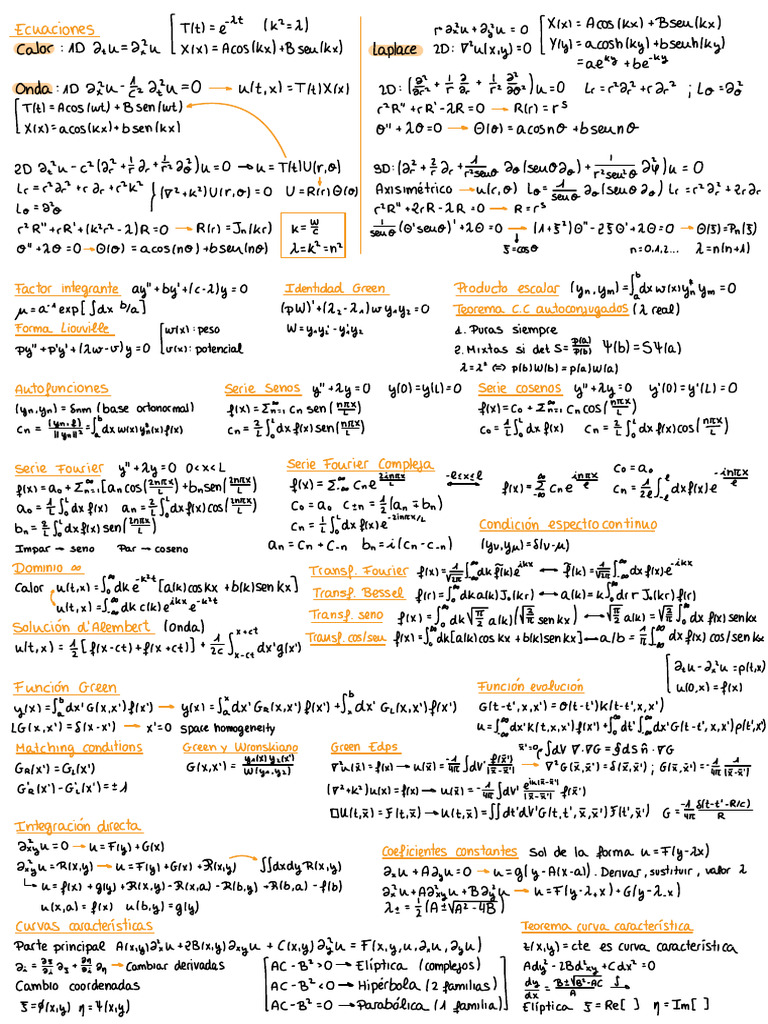 Ecuaciones
Calor : 1D ∂ₜu = ∂ₓ²u [ T(t) = e^{-λt} (k² = λ)
X(x) = Acos(kx) + Bsen(kx)
Onda : 1D ∂ₓ²u - 1/c² ∂ₜ²u = 0 → u(t,x) = T(t)X(x)
[ T(t) = Acos(ωt) + Bsen(ωt)
X(x) = acos(kx) + bsen(kx)
2D ∂ₜ²u - c²(∂ᵣ² + 1/r ∂ᵣ + 1/r² ∂θ²)u = 0 → u = T(t)U(r,θ)
Lr = r²∂ᵣ² + r∂ᵣ + r²k² } (∇² + k²)U(r,θ) = 0 U = R(r)Θ(θ)
Lθ = ∂²θ
r²R'' + rR' + (k²r² - λ)R = 0 → R(r) = Jn(kr)
Θ'' + λΘ = 0 → Θ(θ) = acos(nθ) + bsen(nθ)
k = ω/c
λ = k² = n²
Laplace
r∂ₓ²u + ∂y²u = 0
2D: ∇²u(x,y) = 0 [ X(x) = Acos(kx) + Bsen(kx)
Y(y) = acosh(ky) + bsenh(ky)
= ae^{ky} + be^{-ky}
2D: (∂²/∂r² + 1/r ∂/∂r + 1/r² ∂²/∂θ²)u = 0 Lr = r²∂ᵣ² + r∂ᵣ ; Lθ = ∂θ²
r²R'' + rR' - λR = 0 → R(r) = r^s
Θ'' + λΘ = 0 → Θ(θ) = acosnθ + bsennθ
3D: (∂ᵣ² + 2/r ∂ᵣ + 1/(r²senθ) ∂θ(senθ∂θ) + 1/(r²sen²θ) ∂φ²)u = 0
Axisimétrico → u(r,θ) Lθ = 1/senθ ∂θ(senθ∂θ) Lr = r²∂ᵣ² + 2r∂r
r²R'' + 2rR' - λR = 0 → R = r^s
1/senθ (Θ'senθ)' + λΘ = 0 → (1+ξ²)Θ'' - 2ξΘ' + λΘ = 0 → Θ(ξ) = Pn(ξ)
ξ = cosθ n = 0,1,2... λ = n(n+1)
Factor integrante ay'' + by' + (c-λ)y = 0
μ = a⁻¹exp[∫dx b/a]
Forma Liouville [ w(x): peso
py'' + p'y' + (λw - v)y = 0 v(x): potencial
Identidad Green
(pW)' + (λ₂ - λ₁)w y₁y₂ = 0
W = y₁y₂' - y₁'y₂
Producto escalar (yn, ym) = ∫ₐᵇ dx w(x)yn* ym = 0
Teorema C.C autoconjugados (λ real)
1. Puras siempre
2. Mixtas si det S = p(a)/p(b) Ψ(b) = SΨ(a)
λ = λ* ⇔ p(b)W(b) = p(a)W(a)
Autofunciones
(yn, yn) = δnm (base ortonormal)
Cn = (yn,f)/‖yn‖² = ∫ₐᵇ dx w(x)yn*(x)f(x)
Serie Senos y'' + λy = 0 y(0) = y(L) = 0
f(x) = Σₙ₌₁^∞ Cn sen(nπx/L)
Cn = 2/L ∫₀ᴸ dx f(x)sen(nπx/L)
Serie cosenos y'' + λy = 0 y'(0) = y'(L) = 0
f(x) = C₀ + Σₙ₌₁^∞ Cn cos(nπx/L)
C₀ = 1/L ∫₀ᴸ dx f(x) Cn = 2/L ∫₀ᴸ dx f(x)cos(nπx/L)
Serie Fourier y'' + λy = 0 0<x<L
f(x) = a₀ + Σₙ₌₁^∞ [an cos(2nπx/L) + bn sen(2nπx/L)]
a₀ = 1/L ∫₀ᴸ dx f(x) an = 2/L ∫₀ᴸ dx f(x)cos(2nπx/L)
bn = 2/L ∫₀ᴸ dx f(x)sen(2nπx/L)
Impar → seno Par → coseno
Serie Fourier Compleja
f(x) = Σ₋∞^∞ Cn e^{2inπx/L} -ℓ≤x≤ℓ ↔ f(x) = Σ₋∞^∞ Cn e^{inπx/ℓ}
C₀ = a₀ C±n = 1/2(an ∓ bn)
Cn = 1/L ∫₀ᴸ dx f(x)e^{-2inπx/L}
an = Cn + C-n bn = i(Cn - C-n)
C₀ = a₀
Cn = 1/2ℓ ∫₋ℓ^ℓ dx f(x)e^{-inπx/ℓ}
Condición espectro continuo
(yν, yμ) = δ(ν-μ)
Dominio ∞
Calor u(t,x) = ∫₀^∞ dk e^{-k²t} [a(k)coskx + b(k)senkx]
u(t,x) = ∫₋∞^∞ dk c(k)e^{ikx} e^{-k²t}
Solución d'Alembert (onda)
u(t,x) = 1/2 [f(x-ct) + f(x+ct)] + 1/2c ∫_{x-ct}^{x+ct} dx'g(x')
Transf. Fourier f(x) = 1/√2π ∫₋∞^∞ dk f̃(k)e^{ikx} ↔ f̃(k) = 1/√2π ∫₋∞^∞ dx f(x)e^{-ikx}
Transf. Bessel f(r) = ∫₀^∞ dk a(k)J₀(kr) ↔ a(k) = k∫₀^∞ dr r J₀(kr)f(r)
Transf. seno f(x) = ∫₀^∞ dk √π/2 a(k)(√2/π senkx) ↔ √π/2 a(k) = √2/π ∫₀^∞ dx f(x)senkx
Transf. cos/sen f(x) = ∫₀^∞ dk[a(k)coskx + b(k)senkx] ↔ a/b = 1/π ∫₋∞^∞ dx f(x)cos/senkx
Función Green
y(x) = ∫ₐᵇ dx' G(x,x')f(x') → y(x) = ∫ₐˣ dx' G_R(x,x')f(x') + ∫ₓᵇ dx' G_L(x,x')f(x')
LG(x,x') = δ(x-x') → x'=0 space homogeneity
Función evolución
[ ∂ₜu - ∂ₓ²u = ρ(t,x)
u(0,x) = f(x)
G(t-t',x,x') = Θ(t-t')K(t-t',x,x')
u = ∫₋∞^∞ dx'K(t,x,x')f(x') + ∫₀^∞ dt' ∫₋∞^∞ dx'G(t-t',x,x')ρ(t',x')
Matching conditions
G_R(x') = G_L(x')
G'_R(x') - G'_L(x') = ±1
Green y Wronskiano
G(x,x') = y₁(x)y₂(x')/W(y₁,y₂)
Green Edps
x̄'=0 ∫dV ∇·∇G = ∮ds n̂·∇G
∇²u(x̄) = f(x̄) → u(x̄) = -1/4π ∫dV' f(x̄')/|x̄-x̄'| → ∇²G(x̄,x̄') = δ(x̄,x̄') ; G(x̄,x̄') = -1/4π 1/|x̄-x̄'|
(∇²+k²)u(x) = f(x) → u(x̄) = -1/4π ∫dV' e^{ik|x̄-x̄'|}f(x̄')/|x̄-x̄'|
□U(t,x̄) = F(t,x̄) → u(t,x) = ∫∫dt'dV'G(t,t',x̄,x̄')F(t',x̄') G = -1/4π δ(t-t'-R/c)/R
Integración directa
∂²xy u = 0 → u = F(y) + G(x)
∂²xy u = R(x,y) → u = F(y) + G(x) + R(x,y) → ∫∫dxdy R(x,y)
↳ u = f(x) + g(y) + R(x,y) - R(x,a) - R(b,y) + R(b,a) - f(b)
u(x,a) = f(x) u(b,y) = g(y)
Coeficientes constantes Sol de la forma u = F(y-λx)
∂ₓu + A∂yu = 0 → u = g(y - A(x-a)). Derivar, sustituir, valor λ
∂ₓ²u + A∂²xyu + B∂y²u → u = F(y-λ₊x) + G(y-λ₋x)
λ± = 1/2(A ± √A²-4B)
Curvas características
Parte principal A(x,y)∂ₓ²u + 2B(x,y)∂xyu + C(x,y)∂y²u = F(x,y,u,∂ₓu,∂yu)
∂i = ∂ξ/∂i ∂ξ + ∂η/∂i ∂η → Cambiar derivadas
Cambio coordenadas
ξ = φ(x,y) η = Ψ(x,y)
[ AC - B² > 0 → Elíptica (complejos)
AC - B² < 0 → Hipérbola (2 familias)
AC - B² = 0 → Parabólica (1 familia)
Teorema curva característica
z(x,y) = cte es curva característica
Ady² - 2Bd²xy + Cdx² = 0
dy/dx = B±√B²-AC/A ∫→
Elíptica ξ = Re[ ] η = Im[ ]